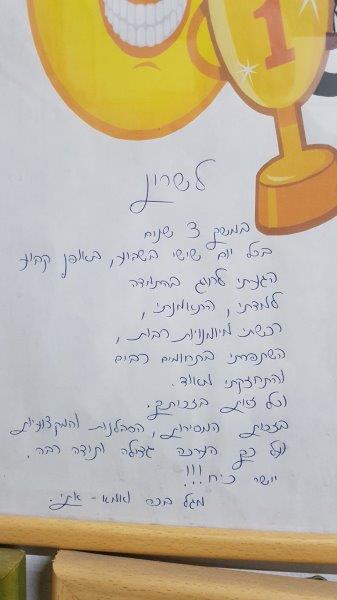 1
לשרון
במשך 3 שנים
בכל יום שישי בשבוע, באופן קבוע
הגעתי לחוג בהתמדה
למדתי, התאמנתי,
רכשתי מיומנויות רבות,
השתפרתי בתחומים רבים
והתחזקתי מאוד.
וכל זאת בזכותך.
בזכות המסירות, הסבלנות והמקצועיות
ועל כך הערכה גדולה ותודה רבה.
יישר כוח!!!
מגל בכה ואמא - אתי.